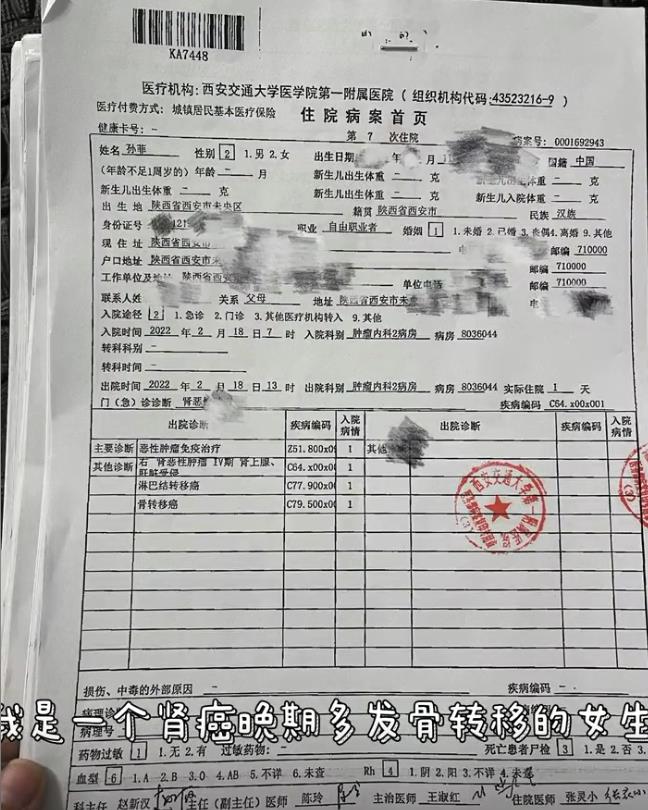 KA7448
医疗机构:西安交通大学医学院第一附属医院(组织机构代码:43523216-9)
医疗付费方式: 城镇居民基本医疗保险
住院病案首页
健康卡号: -
第 7 次住院
病案号: 0001692943
姓名 孙菲 性别 2 1.男 2.女 出生日期 年 月 国籍 中国
(年龄不足1周岁的) 年龄 - 月 新生儿出生体重 - 克 新生儿出生体重 - 克
新生儿出生体重 - 克 新生儿出生体重 - 克 新生儿入院体重 - 克
出生地 陕西省西安市未央区 籍贯 陕西省西安市 民族 汉族
身份证号 职业 自由职业者 婚姻 1 1.未婚 2.已婚 3.丧偶 4.离婚 9.其他
现住址 陕西省西安市 邮编 710000
户口地址 陕西省西安市 邮编 710000
工作单位及地址 陕西省西安市 单位电话 邮编 710000
联系人姓 关系 父母 地址 陕西省西安市未 电
入院途径 2 1.急诊 2.门诊 3.其他医疗机构转入 9.其他
入院时间 2022 年 2 月 18 日 7 时 入院科别 肿瘤内科2病房 病房 8036044
转科科别 -
转科时间 -
出院时间 2022 年 2 月 18 日 13 时 出院科别 肿瘤内科2病房 病房 8036044 实际住院 1 天
门(急)诊诊断 肾恶 疾病编码 C64.x00x001
出院诊断 疾病编码 入院病情 出院诊断 疾病编码 入院病情
主要诊断 恶性肿瘤免疫治疗 Z51.800x0 1 其他
其他诊断 右 肾恶性肿瘤 IV期 肾上腺、肝脏受侵 C64.x00x0 1
淋巴结转移癌 C77.900x0 1
骨转移癌 C79.500x0 1
西安交通大学第一附属医院
损伤、中毒的外部原因 - 疾病编码 -
我是一个肾癌晚期多发骨转移的女生
病理号
药物过敏 1 1.无 2.有 过敏药物: - 死亡患者尸检 3 1.是 2.否 3.
血型 6 1.A 2.B 3.O 4.AB 5.不详 6.未查 Rh 4 1.阴 2.阳 3.不详 4.未查
科主任 赵新汉 主任(副主任)医师 陈玲 主治医师 王淑红 住院医师 张灵小